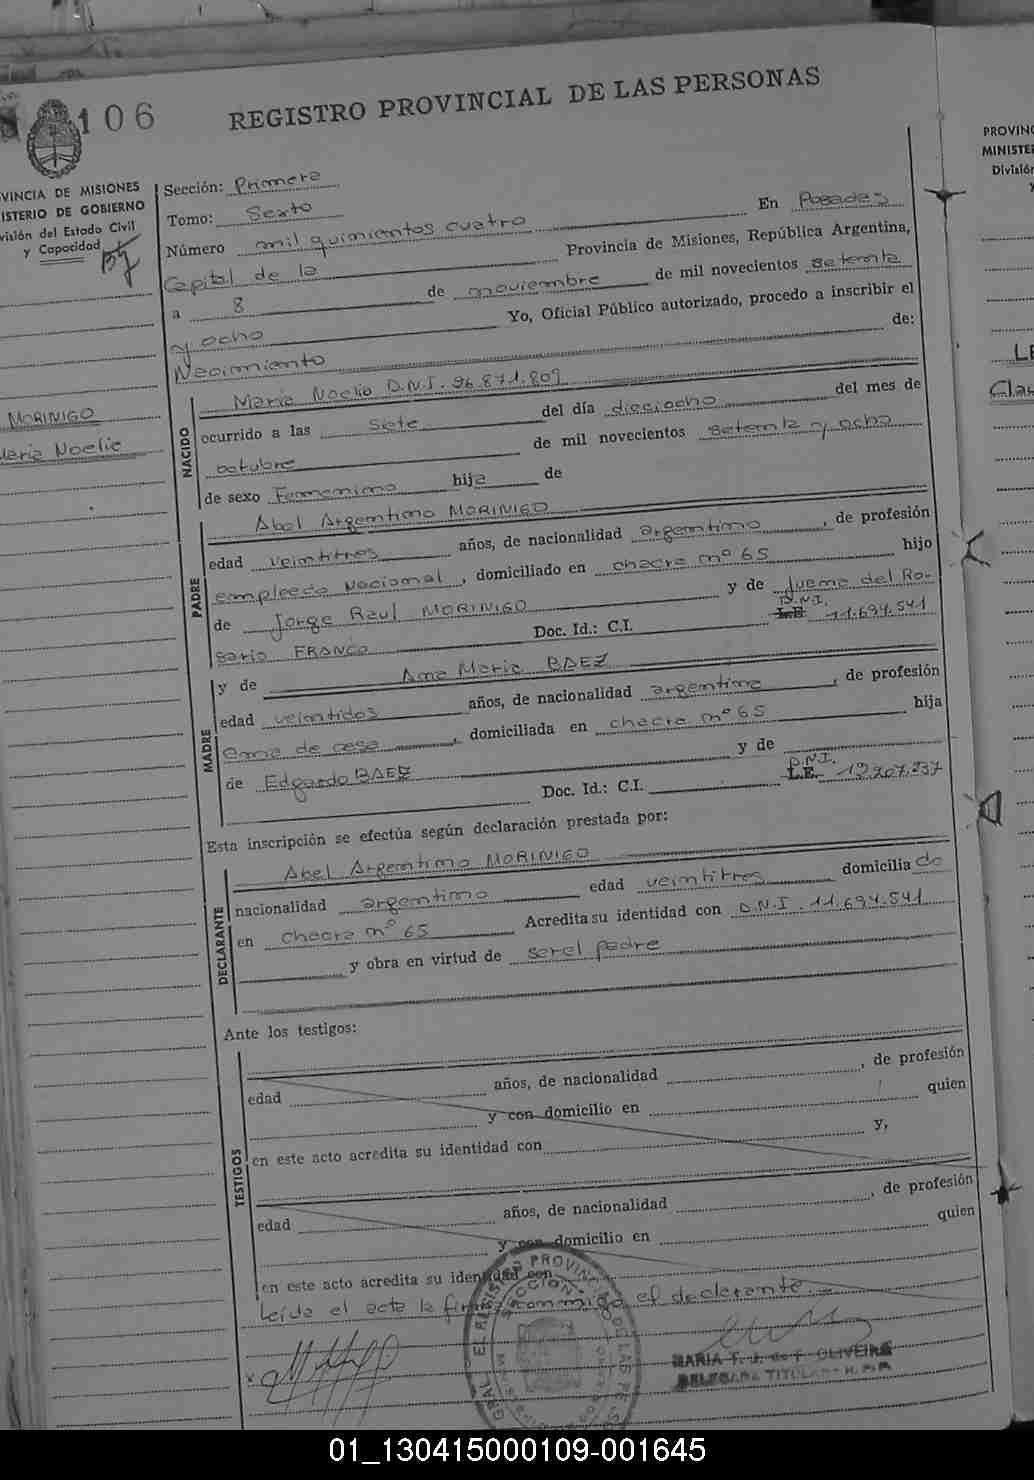 106
REGISTRO PROVINCIAL DE LAS PERSONAS
VINCIA DE MISIONES
ISTERIO DE GOBIERNO
visión del Estado Civil
y Capacidad
MORINIGO
María Noelia
Sección: Primera
Tomo: Sexto
Número mil quinientos cuatro En Posadas
Capital de la Provincia de Misiones, República Argentina,
a 8 de noviembre de mil novecientos setenta
y ocho Yo, Oficial Público autorizado, procedo a inscribir el
Nacimiento de:
NACIDO
María Noelia D.N.I. 26.871.809
ocurrido a las siete del día dieciocho del mes de
octubre de mil novecientos setenta y ocho
de sexo Femenino hija de
PADRE
Abel Argentino MORINIGO
edad veintitres años, de nacionalidad argentino, de profesión
empleado Nacional, domiciliado en chacra nº 65 hijo
de Jorge Raul MORINIGO y de Juana del Ro-
sario FRANCO Doc. Id.: C.I. L.E. D.N.I. 11.694.541
MADRE
y de Ana María BAEZ
edad veintidos años, de nacionalidad argentina, de profesión
ama de casa, domiciliada en chacra nº 65 hija
de Edgardo BAEZ y de
Doc. Id.: C.I. L.E. D.N.I. 12.207.237
Esta inscripción se efectúa según declaración prestada por:
DECLARANTE
Abel Argentino MORINIGO
nacionalidad argentino edad veintitres domicilia do
en chacra nº 65 Acredita su identidad con D.N.I. 11.694.541
y obra en virtud de ser el padre
Ante los testigos:
TESTIGOS
edad años, de nacionalidad, de profesión
y con domicilio en quien
en este acto acredita su identidad con y,
edad años, de nacionalidad, de profesión
y con domicilio en quien
en este acto acredita su identidad con
Leída el acta la firma conmigo el declarante.-
MARIA T. J. de F. OLIVEIRA
DELEGADA TITULAR
PROVINC
MINISTE
División
LE
Clau
01_130415000109-001645